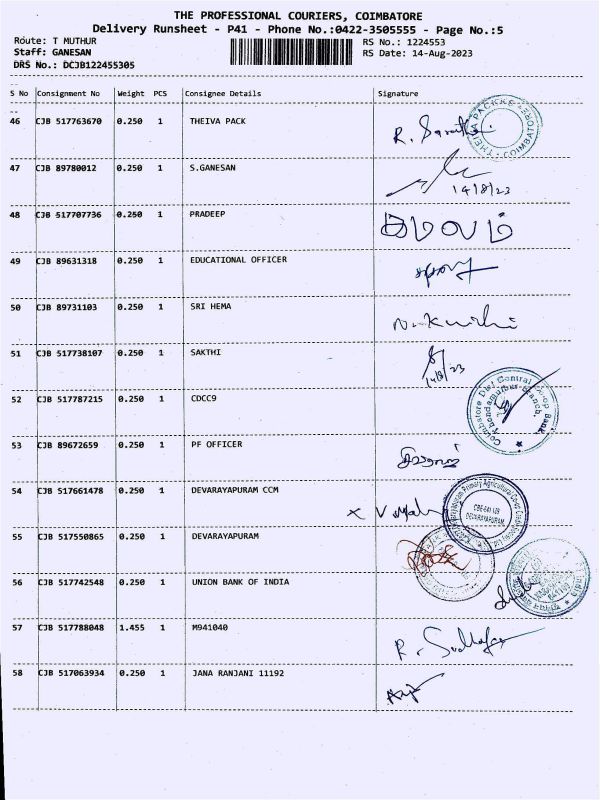 THE PROFESSIONAL COURIERS, COIMBATORE
Delivery Runsheet - P41 - Phone No.:0422-3505555 - Page No.:5
Route: T MUTHUR RS No.: 1224553
Staff: GANESAN RS Date: 14-Aug-2023
DRS No.: DCJB122455305
S No Consignment No Weight PCS Consignee Details Signature
46 CJB 517763670 0.250 1 THEIVA PACK
THEIVA PACKKS COIMBATORE
47 CJB 89780012 0.250 1 S.GANESAN
14/8/23
48 CJB 517707736 0.250 1 PRADEEP
49 CJB 89631318 0.250 1 EDUCATIONAL OFFICER
50 CJB 89731103 0.250 1 SRI HEMA
51 CJB 517738107 0.250 1 SAKTHI
14/8/23
52 CJB 517787215 0.250 1 CDCC9
Coimbatore Dist Central Co.op Bank
53 CJB 89672659 0.250 1 PF OFFICER
54 CJB 517661478 0.250 1 DEVARAYAPURAM CCM
DEVARAYAPURAM
55 CJB 517550865 0.250 1 DEVARAYAPURAM
56 CJB 517742548 0.250 1 UNION BANK OF INDIA
57 CJB 517788048 1.455 1 M941040
58 CJB 517063934 0.250 1 JANA RANJANI 11192